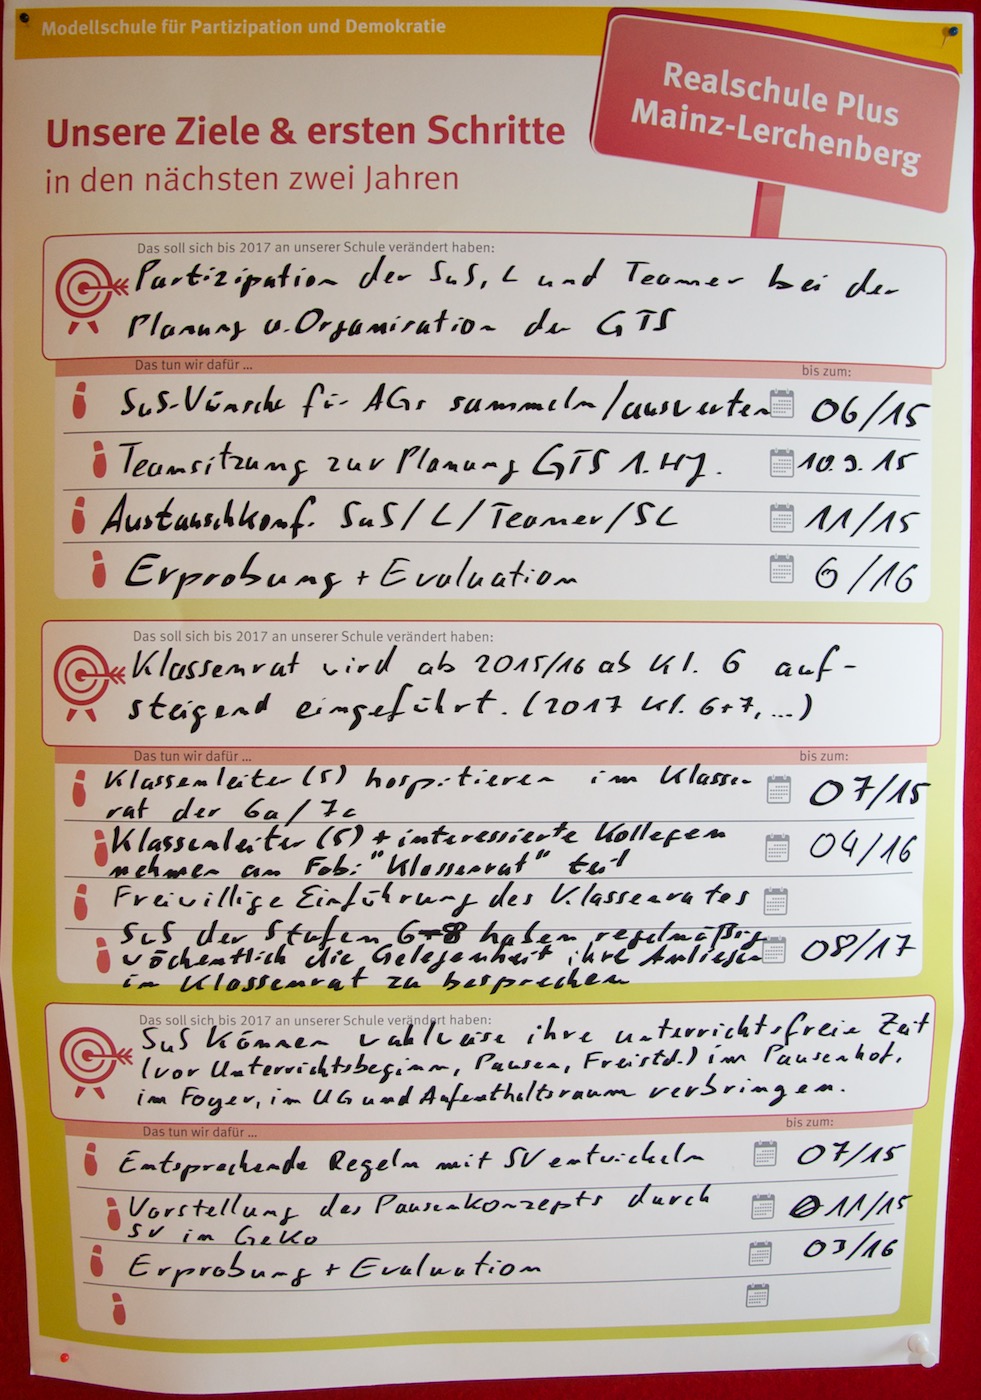 Modellschule für Partizipation und Demokratie
Realschule Plus
Mainz-Lerchenberg
Unsere Ziele & ersten Schritte
in den nächsten zwei Jahren
Das soll sich bis 2017 an unserer Schule verändert haben:
Partizipation der SuS, L und Teamer bei der
Planung u. Organisation der GTS
Das tun wir dafür ... bis zum:
SuS-Wünsche für AGs sammeln/auswerten 06/15
Teamsitzung zur Planung GTS 1. HJ. 10.9.15
Austauschkonf. SuS/L/Teamer/SL 11/15
Erprobung + Evaluation 6/16
Das soll sich bis 2017 an unserer Schule verändert haben:
Klassenrat wird ab 2015/16 ab Kl. 6 auf-
steigend eingeführt. (2017 Kl. 6+7, ...)
Das tun wir dafür ... bis zum:
Klassenleiter (5) hospitieren im Klassen-
rat der 6a/7c 07/15
Klassenleiter (5) + interessierte Kollegen
nehmen an Fobi "Klassenrat" teil 04/16
Freiwillige Einführung des Klassenrates
SuS der Stufen 6-8 haben regelmäßig
wöchentlich die Gelegenheit ihre Anliegen 08/17
im Klassenrat zu besprechen
Das soll sich bis 2017 an unserer Schule verändert haben:
SuS können wahlweise ihre unterrichtsfreie Zeit
(vor Unterrichtsbeginn, Pausen, Freistd.) im Pausenhof,
im Foyer, im UG und Aufenthaltsraum verbringen.
Das tun wir dafür ... bis zum:
Entsprechende Regeln mit SV entwickeln 07/15
Vorstellung des Pausenkonzepts durch 11/15
SV in GeKo
Erprobung + Evaluation 03/16